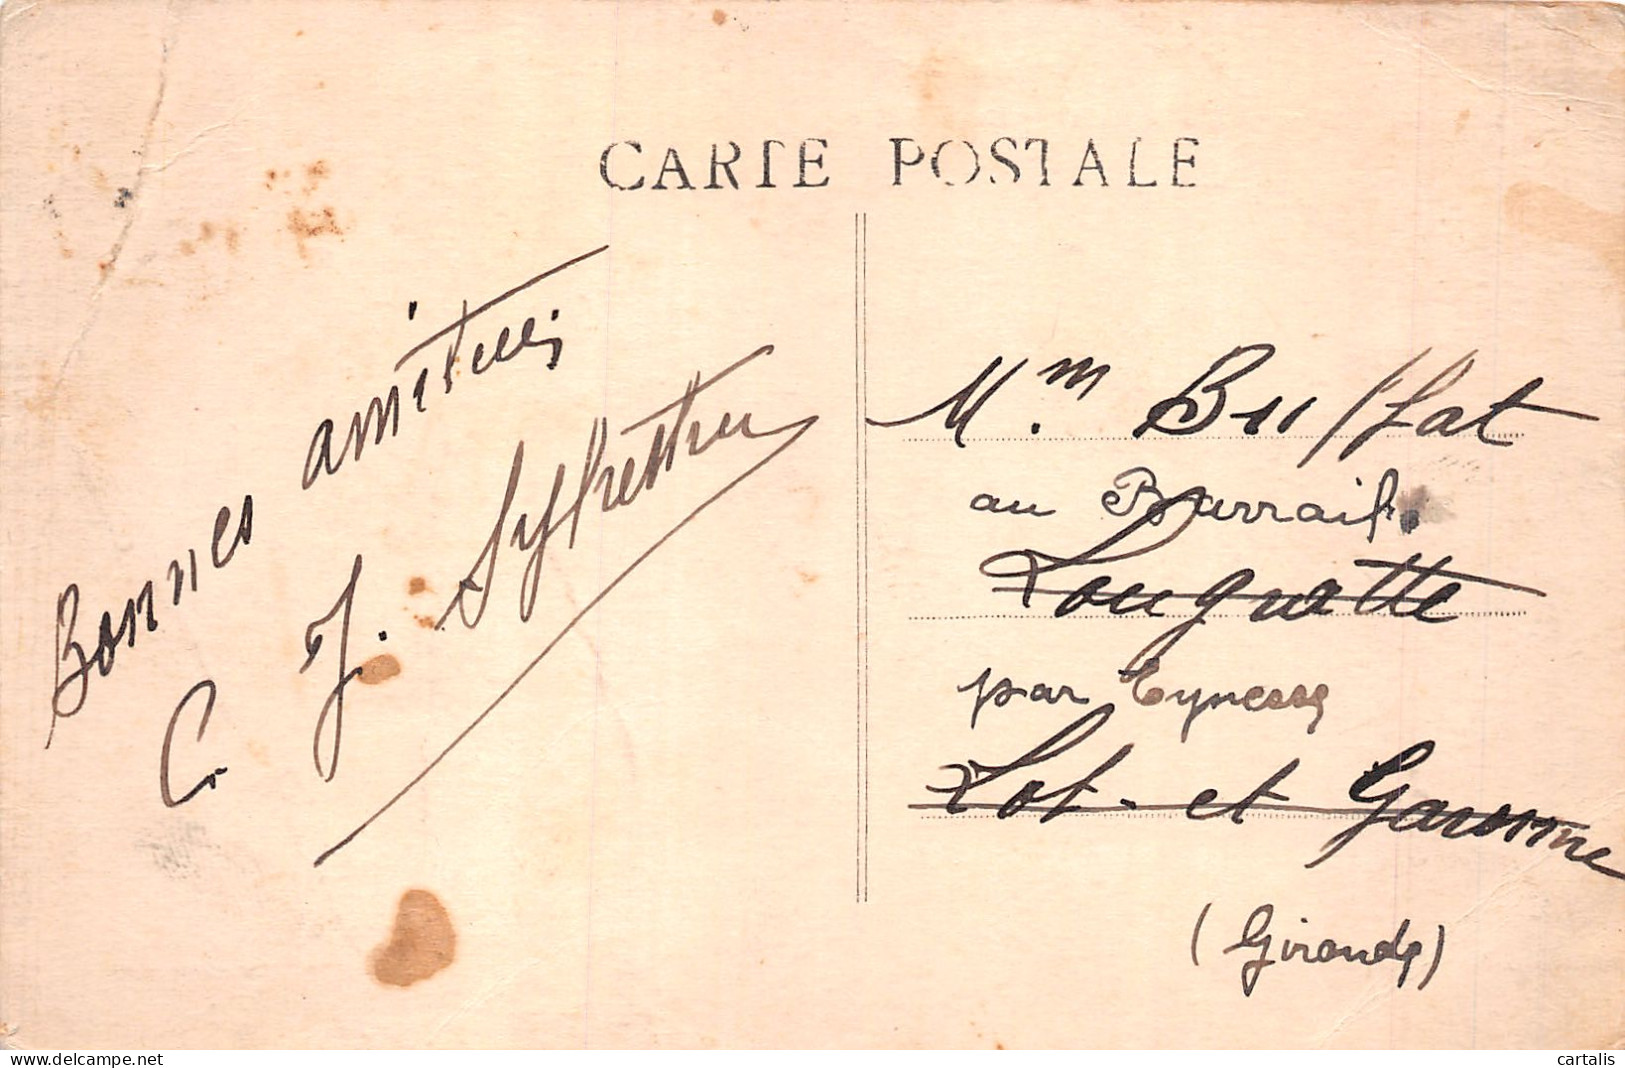 CARTE POSTALE
Bonnes amitiés
C. J. Sylvestre
Mm Buffat
au Barrail
Longuette
par Eynesse
Lot-et Garonne
(Gironde)
delcampe.net
cartalis